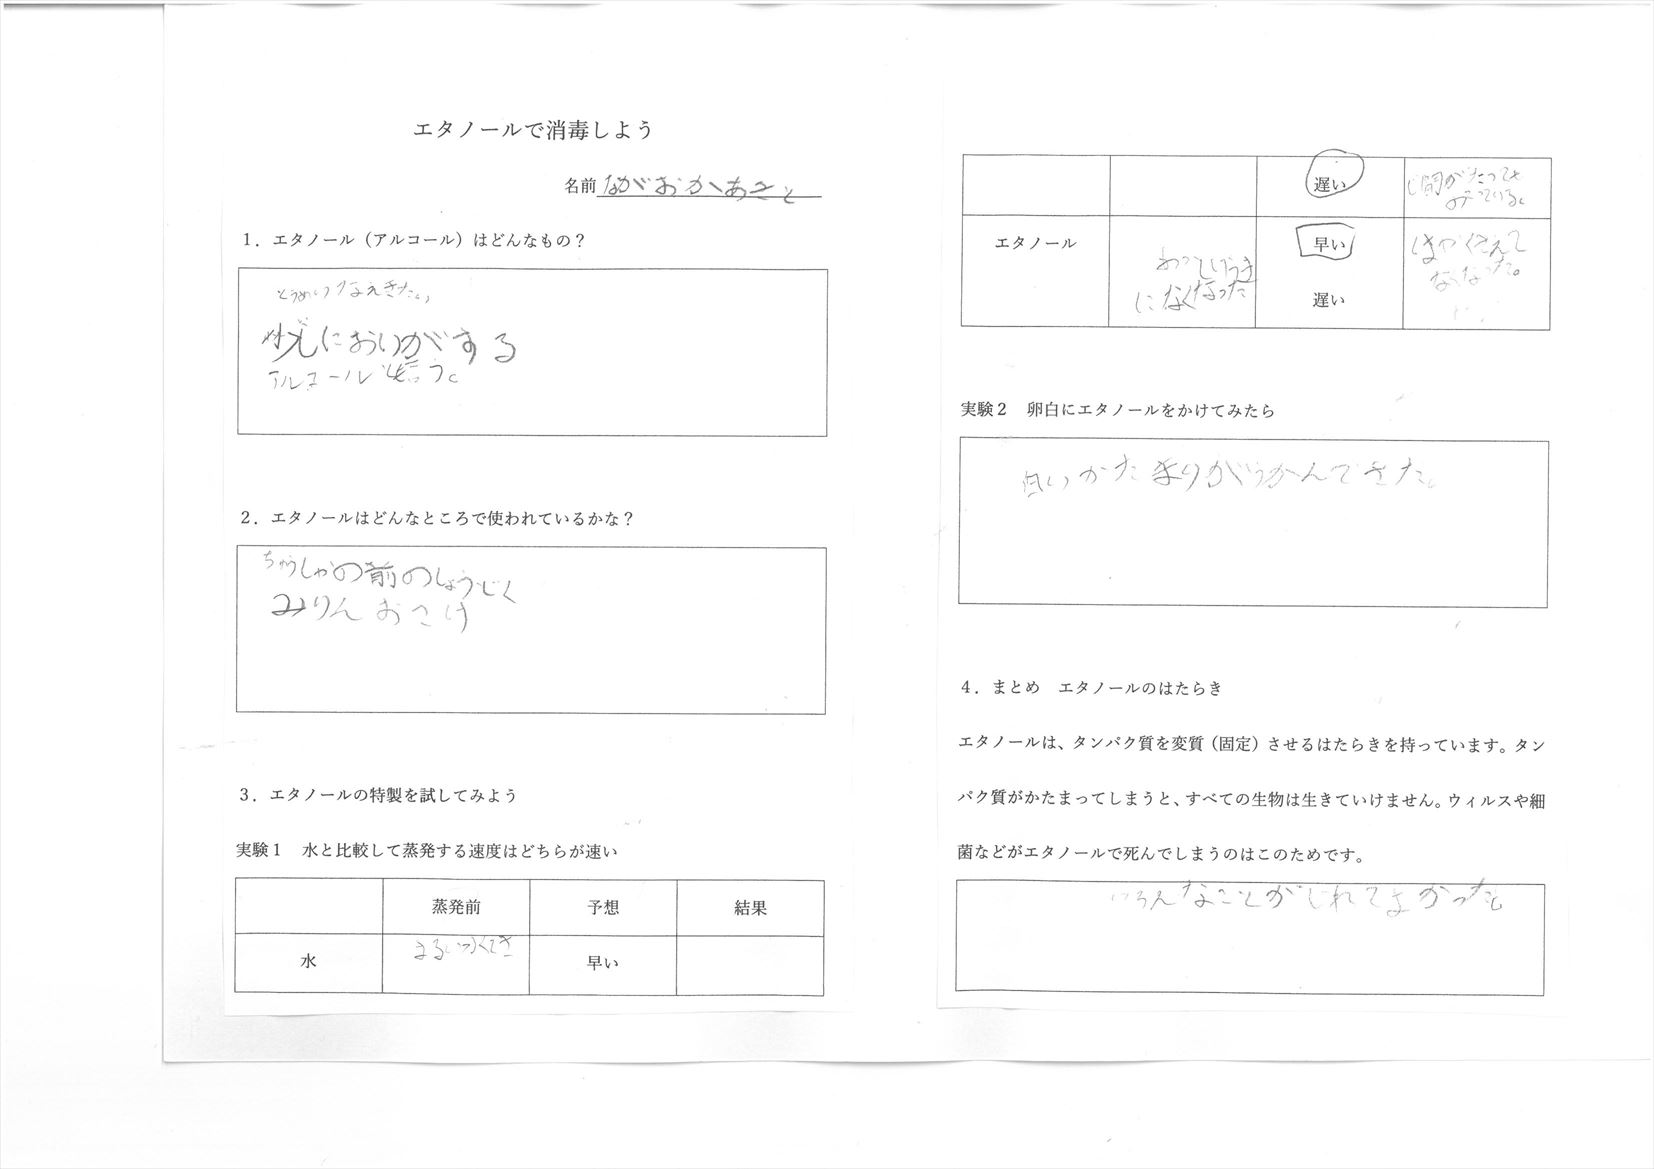 エタノールで消毒しよう
名前 ながおかあさと
１．エタノール（アルコール）はどんなもの？
とうめいなえきたい
変においがする
アルコール
２．エタノールはどんなところで使われているかな？
ちゅうしゃの前のしょうどく
みりん おこけ
３．エタノールの特製を試してみよう
実験１　水と比較して蒸発する速度はどちらが速い
蒸発前 予想 結果
水 まるい 早い
遅い
間がたっても
エタノール 早い はやくきえて
なくなった。
になくなった 遅い
実験２　卵白にエタノールをかけてみたら
白いかたまりがうかんできた。
４．まとめ　エタノールのはたらき
エタノールは、タンパク質を変質（固定）させるはたらきを持っています。タン
パク質がかたまってしまうと、すべての生物は生きていけません。ウィルスや細
菌などがエタノールで死んでしまうのはこのためです。
いろんなことがしれてよかった